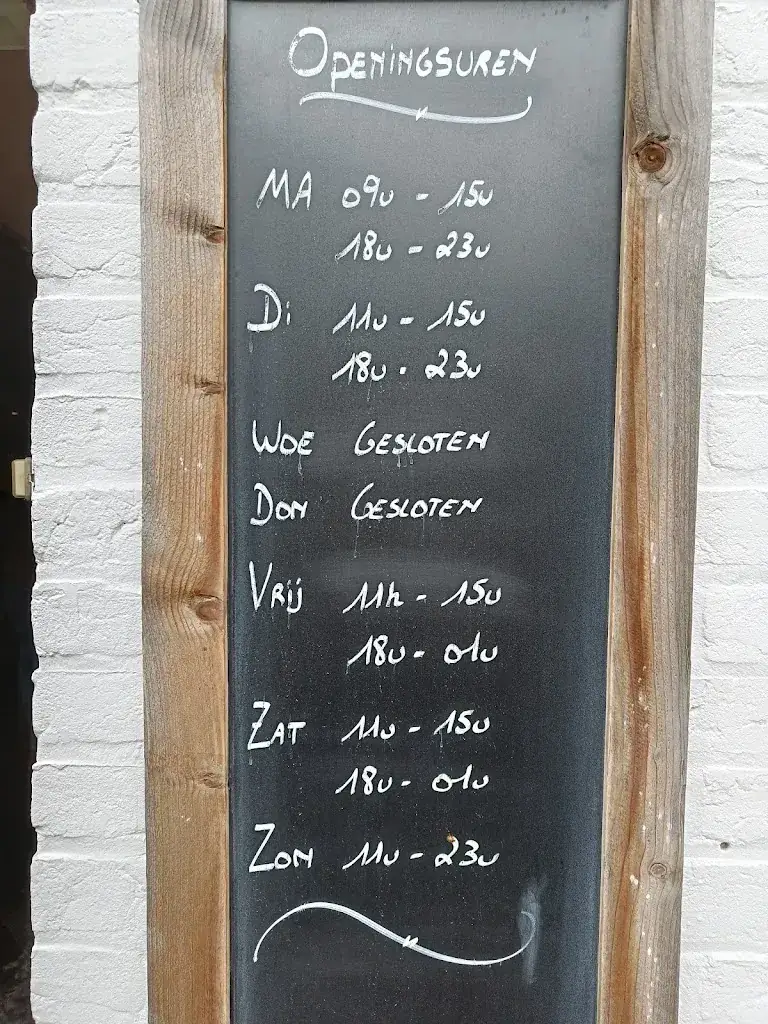 OPENINGSUREN
MA 09u - 15u
18u - 23u
Di 11u - 15u
18u - 23u
WOE GESLOTEN
DON GESLOTEN
VRIJ 11h - 15u
18u - 01u
ZAT 11u - 15u
18u - 01u
ZON 11u - 23u